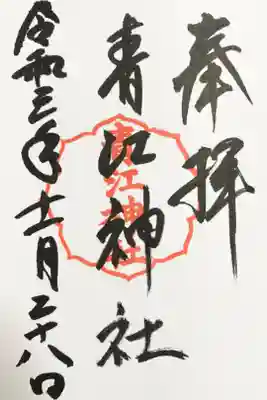 奉拝
青江神社
青江神社
令和三年十二月二十八日